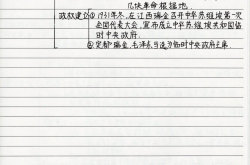 几块革命根据地。
政权建立①1931年冬,在江西瑞金召开中华苏维埃第一次
全国代表大会,宣布成立中华苏维埃共和国临
时中央政府。
②定都瑞金,毛泽东当选为临时中央政府主席。